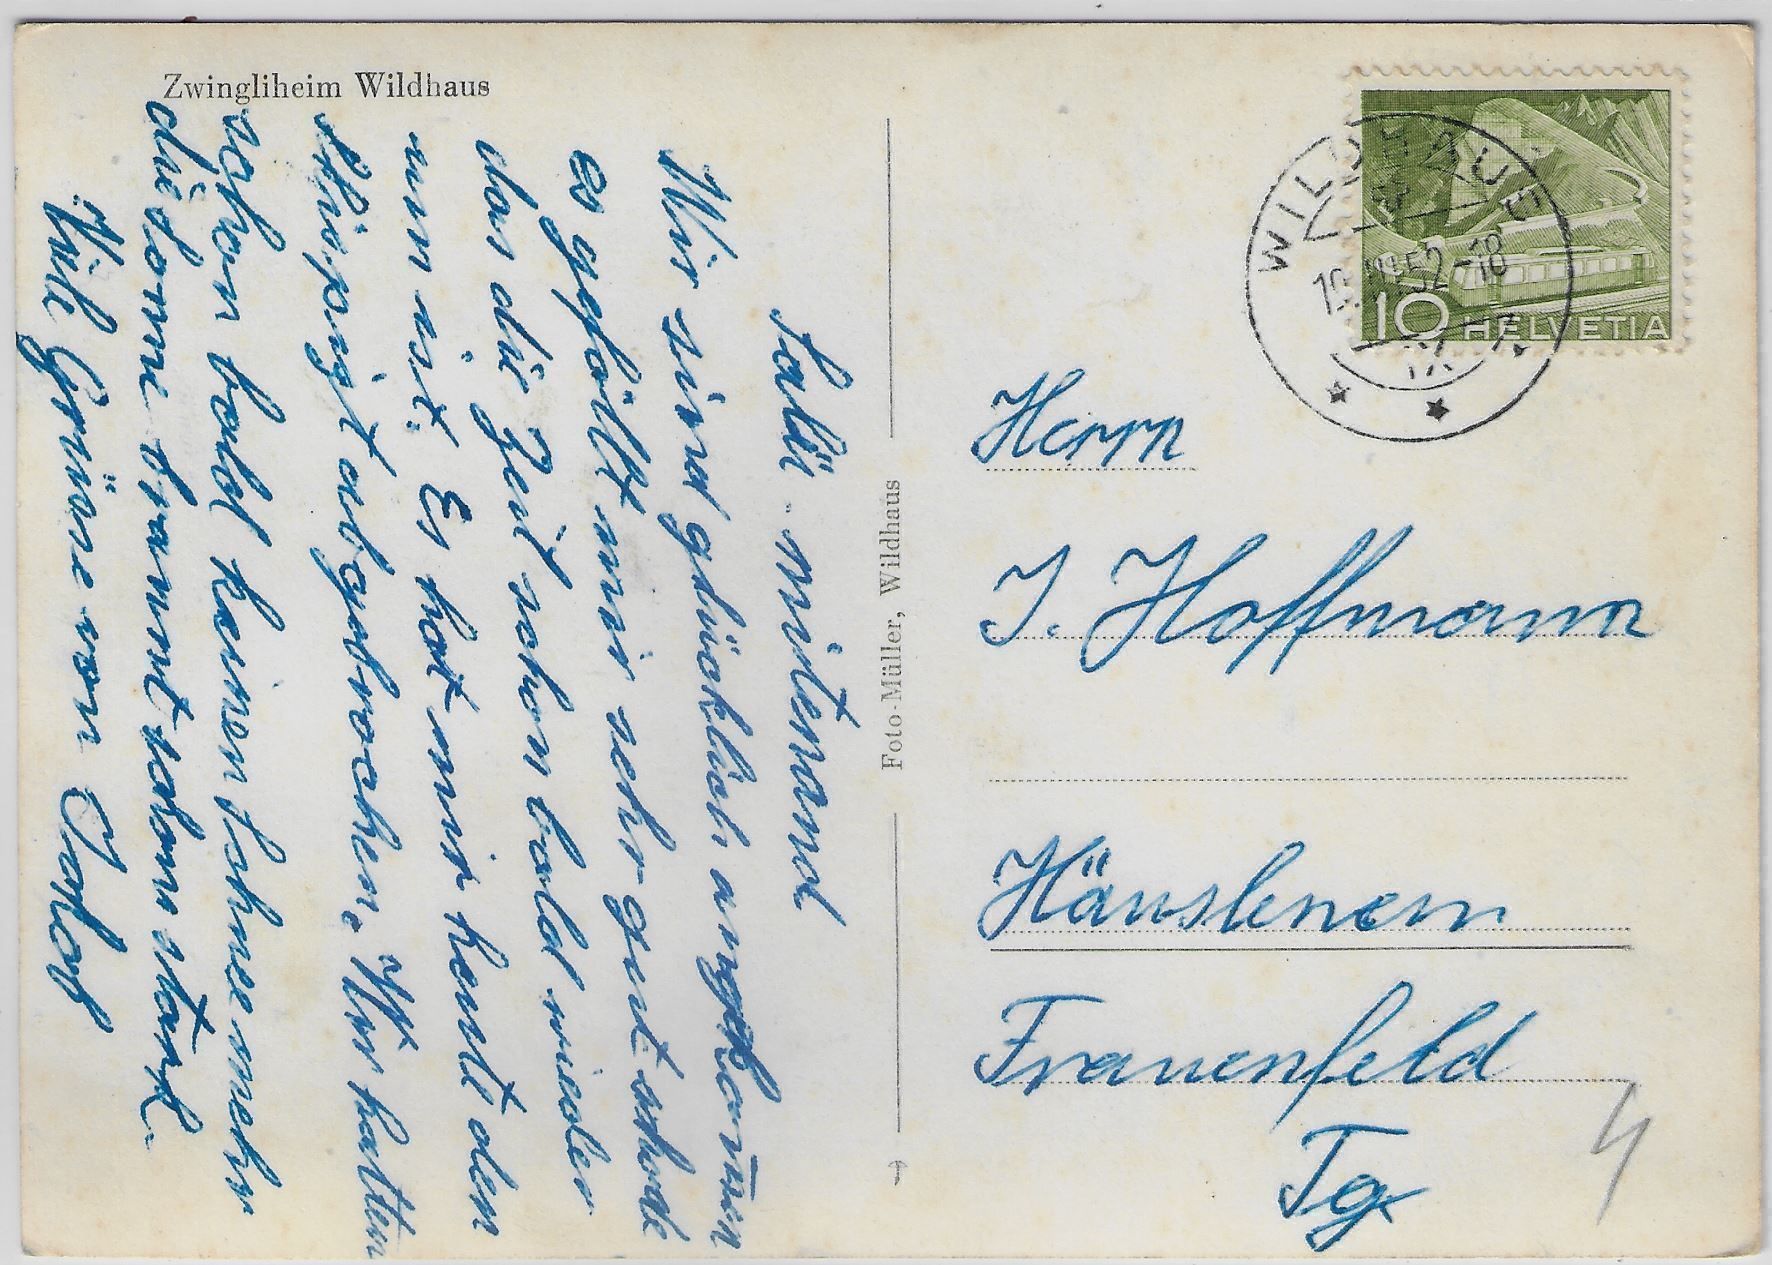 Zwingliheim Wildhaus
Salü mitenand
Wir sind glücklich angekommen
es gfällt mir sehr gut schade
das die Zeit schon bald wieder
um ist. Es hat mir heute den
Skispitz abgebrochen. Wir hatten
schon bald keinen Schnee mehr
die Sonne brannt schon stark.
Viele Grüsse von Jakob
Foto-Müller, Wildhaus
WILDHAUS
52-18
10 HELVETIA
Herrn
J. Hoffmann
Häuslenen
Frauenfeld
Tg